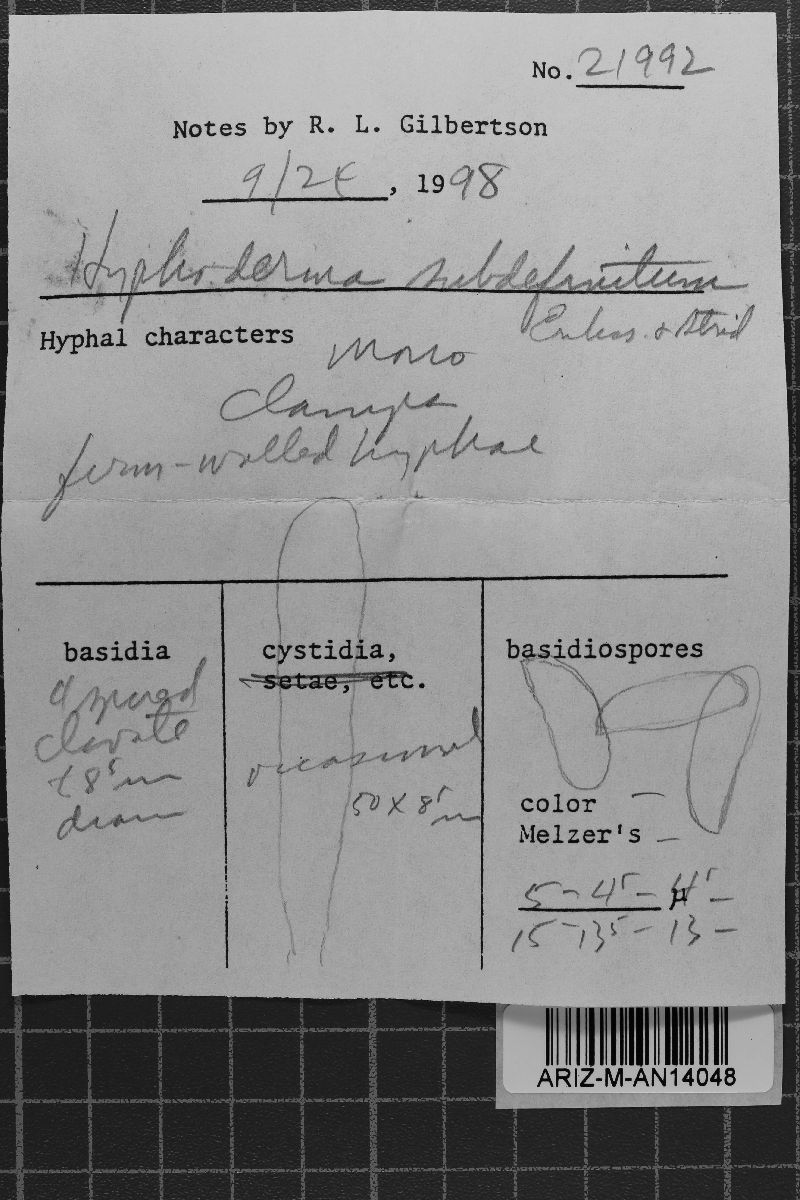 No. 21992
Notes by R. L. Gilbertson
9/24, 1998
Hyphoderma subdefinitum
Erikss. & Strid
Hyphal characters
mono
clamps
firm-walled hyphae
basidia
4 spored
clavate
8⁵ m
diam
cystidia,
setae, etc.
occasional
50 X 8⁵ m
basidiospores
color —
Melzer's —
5 - 4⁵ - µ 4⁵ -
15 - 13⁵ - 13 -
ARIZ-M-AN14048